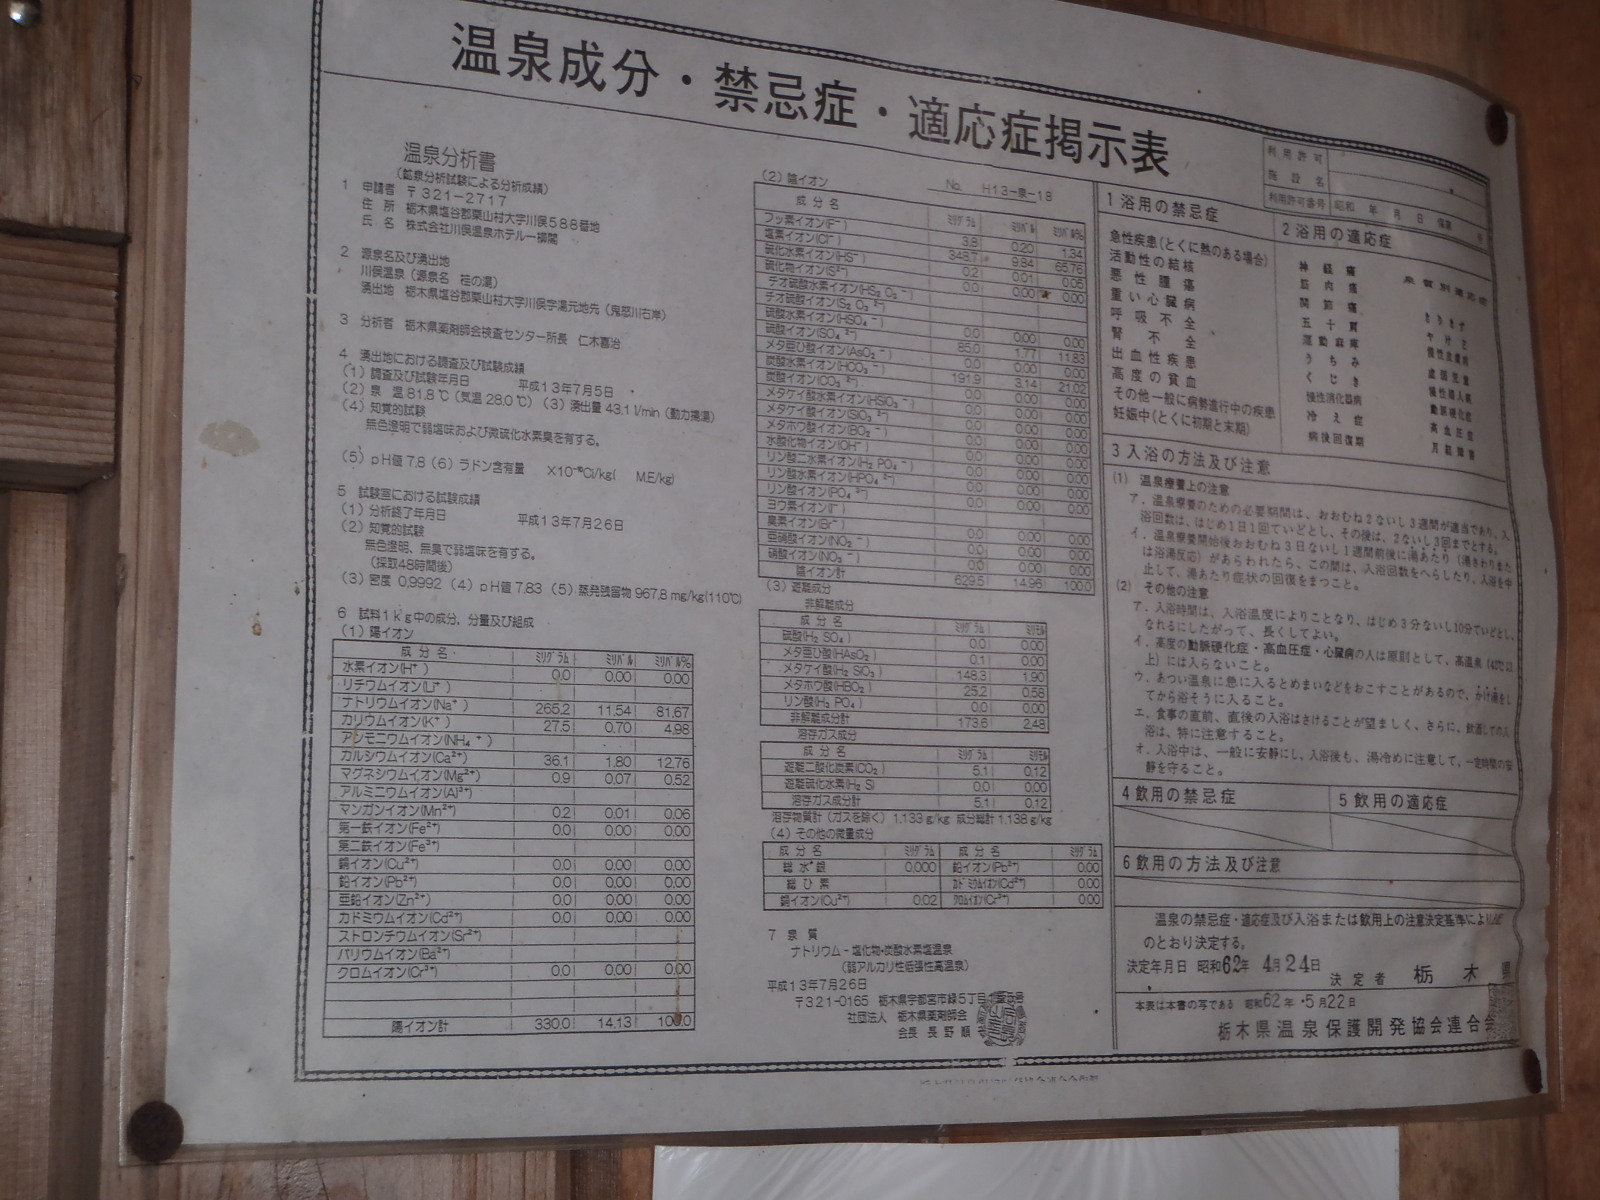 温泉成分・禁忌症・適応症掲示表
利用許可
施設名
利用許可番号 昭和 年 月 日
温泉分析書
(鉱泉分析試験による分析成績)
1 申請者 〒321-2717
住 所 栃木県塩谷郡栗山村大字川俣588番地
氏 名 株式会社川俣温泉ホテル一柳閣
2 源泉名及び湧出地
川俣温泉(源泉名 桂の湯)
湧出地 栃木県塩谷郡栗山村大字川俣字湯元地先(鬼怒川右岸)
3 分析者 栃木県薬剤師会検査センター所長 仁木喜治
4 湧出地における調査及び試験成績
(1)調査及び試験年月日 平成13年7月5日
(2)泉 温 81.8℃(気温 28.0℃)(3)湧出量 43.1 l/min(動力揚湯)
(4)知覚的試験
無色澄明で弱塩味および微硫化水素臭を有する。
(5)pH値 7.8(6)ラドン含有量 ×10⁻¹⁰Ci/kg( M.E/kg)
5 試験室における試験成績
(1)分析終了年月日 平成13年7月26日
(2)知覚的試験
無色澄明、無臭で弱塩味を有する。
(採取48時間後)
(3)密度 0.9992(4)pH値 7.83(5)蒸発残留物 967.8 mg/kg(110℃)
6 試料1kg中の成分,分量及び組成
(1)陽イオン
成分名 ミリグラム ミリバル ミリバル%
水素イオン(H⁺) 0.0 0.00 0.00
リチウムイオン(Li⁺)
ナトリウムイオン(Na⁺) 265.2 11.54 81.67
カリウムイオン(K⁺) 27.5 0.70 4.98
アンモニウムイオン(NH₄⁺)
カルシウムイオン(Ca²⁺) 36.1 1.80 12.76
マグネシウムイオン(Mg²⁺) 0.9 0.07 0.52
アルミニウムイオン(Al³⁺)
マンガンイオン(Mn²⁺) 0.2 0.01 0.06
第一鉄イオン(Fe²⁺) 0.0 0.00 0.00
第二鉄イオン(Fe³⁺)
銅イオン(Cu²⁺) 0.0 0.00 0.00
鉛イオン(Pb²⁺) 0.0 0.00 0.00
亜鉛イオン(Zn²⁺) 0.0 0.00 0.00
カドミウムイオン(Cd²⁺) 0.0 0.00 0.00
ストロンチウムイオン(Sr²⁺)
バリウムイオン(Ba²⁺)
クロムイオン(Cr³⁺) 0.0 0.00 0.00
陽イオン計 330.0 14.13 100.0
(2)陰イオン No. H13-泉-18
成分名 ミリグラム ミリバル ミリバル%
フッ素イオン(F⁻) 3.8 0.20 1.34
塩素イオン(Cl⁻) 348.7 9.84 65.76
硫化水素イオン(HS⁻) 0.2 0.01 0.05
硫化物イオン(S²⁻) 0.0 0.00 0.00
チオ硫酸水素イオン(HS₂O₃⁻)
チオ硫酸イオン(S₂O₃²⁻)
硫酸水素イオン(HSO₄⁻) 0.0 0.00 0.00
硫酸イオン(SO₄²⁻) 85.0 1.77 11.83
メタ亜ひ酸イオン(AsO₂⁻) 0.0 0.00 0.00
炭酸水素イオン(HCO₃⁻) 191.9 3.14 21.02
炭酸イオン(CO₃²⁻) 0.0 0.00 0.00
メタケイ酸水素イオン(HSiO₃⁻) 0.0 0.00 0.00
メタケイ酸イオン(SiO₃²⁻) 0.0 0.00 0.00
メタホウ酸イオン(BO₂⁻) 0.0 0.00 0.00
水酸化物イオン(OH⁻) 0.0 0.00 0.00
リン酸二水素イオン(H₂PO₄⁻) 0.0 0.00 0.00
リン酸水素イオン(HPO₄²⁻) 0.0 0.00 0.00
リン酸イオン(PO₄³⁻) 0.0 0.00 0.00
ヨウ素イオン(I⁻)
臭素イオン(Br⁻) 0.0 0.00 0.00
亜硝酸イオン(NO₂⁻) 0.0 0.00 0.00
硝酸イオン(NO₃⁻) 0.0 0.00 0.00
陰イオン計 629.5 14.96 100.0
(3)遊離成分
非解離成分
成分名 ミリグラム ミリモル
硫酸(H₂SO₄) 0.0 0.00
メタ亜ひ酸(HAsO₂) 0.1 0.00
メタケイ酸(H₂SiO₃) 148.3 1.90
メタホウ酸(HBO₂) 25.2 0.58
リン酸(H₃PO₄) 0.0 0.00
非解離成分計 173.6 2.48
溶存ガス成分
成分名 ミリグラム ミリモル
遊離二酸化炭素(CO₂) 5.1 0.12
遊離硫化水素(H₂S) 0.0 0.00
溶存ガス成分計 5.1 0.12
溶存物質計(ガスを除く)1.133 g/kg 成分総計 1.138 g/kg
(4)その他の微量成分
成分名 ミリグラム 成分名 ミリグラム
総水銀 0.000 鉛イオン(Pb²⁺) 0.00
総ひ素 カドミウムイオン(Cd²⁺) 0.00
銅イオン(Cu²⁺) 0.02 クロムイオン(Cr³⁺) 0.00
7 泉 質
ナトリウム-塩化物・炭酸水素塩温泉
(弱アルカリ性低張性高温泉)
平成13年7月26日
〒321-0165 栃木県宇都宮市緑5丁目
社団法人 栃木県薬剤師会
会長 長野 順
1 浴用の禁忌症
急性疾患(とくに熱のある場合)
活動性の結核
悪性腫瘍
重い心臓病
呼吸不全
腎不全
出血性疾患
高度の貧血
その他一般に病勢進行中の疾患
妊娠中(とくに初期と末期)
2 浴用の適応症
神経痛
筋肉痛
関節痛
五十肩
運動麻痺
うちみ
くじき
慢性消化器病
冷え症
病後回復期
泉質別適応症
きりきず
やけど
慢性皮膚病
虚弱児童
慢性婦人病
動脈硬化症
高血圧症
月経障害
3 入浴の方法及び注意
(1) 温泉療養上の注意
ア. 温泉療養のための必要期間は、おおむね2ないし3週間が適当であり、入
浴回数は、はじめ1日1回ていどとし、その後は、2ないし3回までとする。
イ. 温泉療養開始後おおむね3日ないし1週間前後に湯あたり(湯さわりまた
は浴湯反応)があらわれたら、この間は、入浴回数をへらしたり、入浴を中
止して、湯あたり症状の回復をまつこと。
(2) その他の注意
ア. 入浴時間は、入浴温度によりことなり、はじめ3分ないし10分ていどとし、
なれるにしたがって、長くしてよい。
イ. 高度の動脈硬化症・高血圧症・心臓病の人は原則として、高温泉(42℃以
上)には入らないこと。
ウ. あつい温泉に急に入るとめまいなどをおこすことがあるので、かけ湯をし
てから浴そうに入ること。
エ. 食事の直前、直後の入浴はさけることが望ましく、さらに、飲酒しての入
浴は、特に注意すること。
オ. 入浴中は、一般に安静にし、入浴後も、湯冷めに注意して、一定時間の安
静を守ること。
4 飲用の禁忌症
5 飲用の適応症
6 飲用の方法及び注意
温泉の禁忌症・適応症及び入浴または飲用上の注意決定基準により
のとおり決定する。
決定年月日 昭和62年 4月24日
決定者 栃木県
本表は本書の写である 昭和62年・5月22日
栃木県温泉保護開発協会連合会